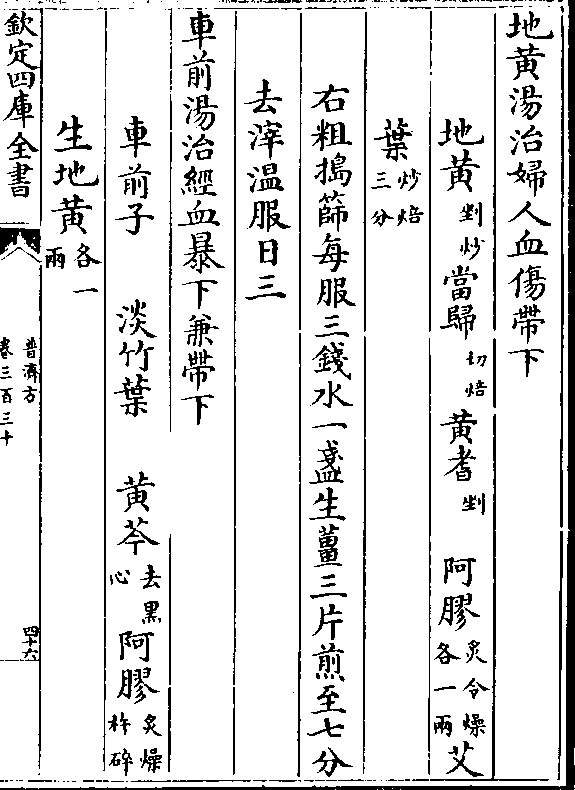 地黄湯治婦人血傷帶下
地黄剉炒當歸切焙黄耆剉阿膠炙令燥各一兩艾
葉炒焙三分
右粗搗篩每服三錢水一盞生薑三片煎至七分
去滓温服日三
車前湯治經血暴下兼帶下
車前子淡竹葉黄芩去黑心阿膠炙燥杵碎
生地黄各一兩
欽定四庫全書
普濟方
卷三百三十
四十六